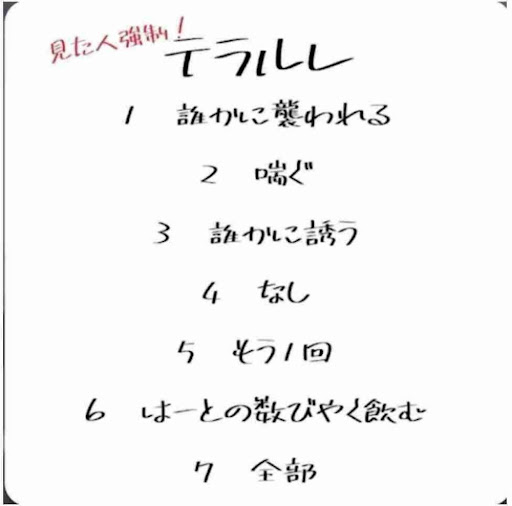 見た人強制!
テラルレ
1 誰かに襲われる
2 喘ぐ
3 誰かに誘う
4 なし
5 もう1回
6 はーとの数びやく飲む
7 全部